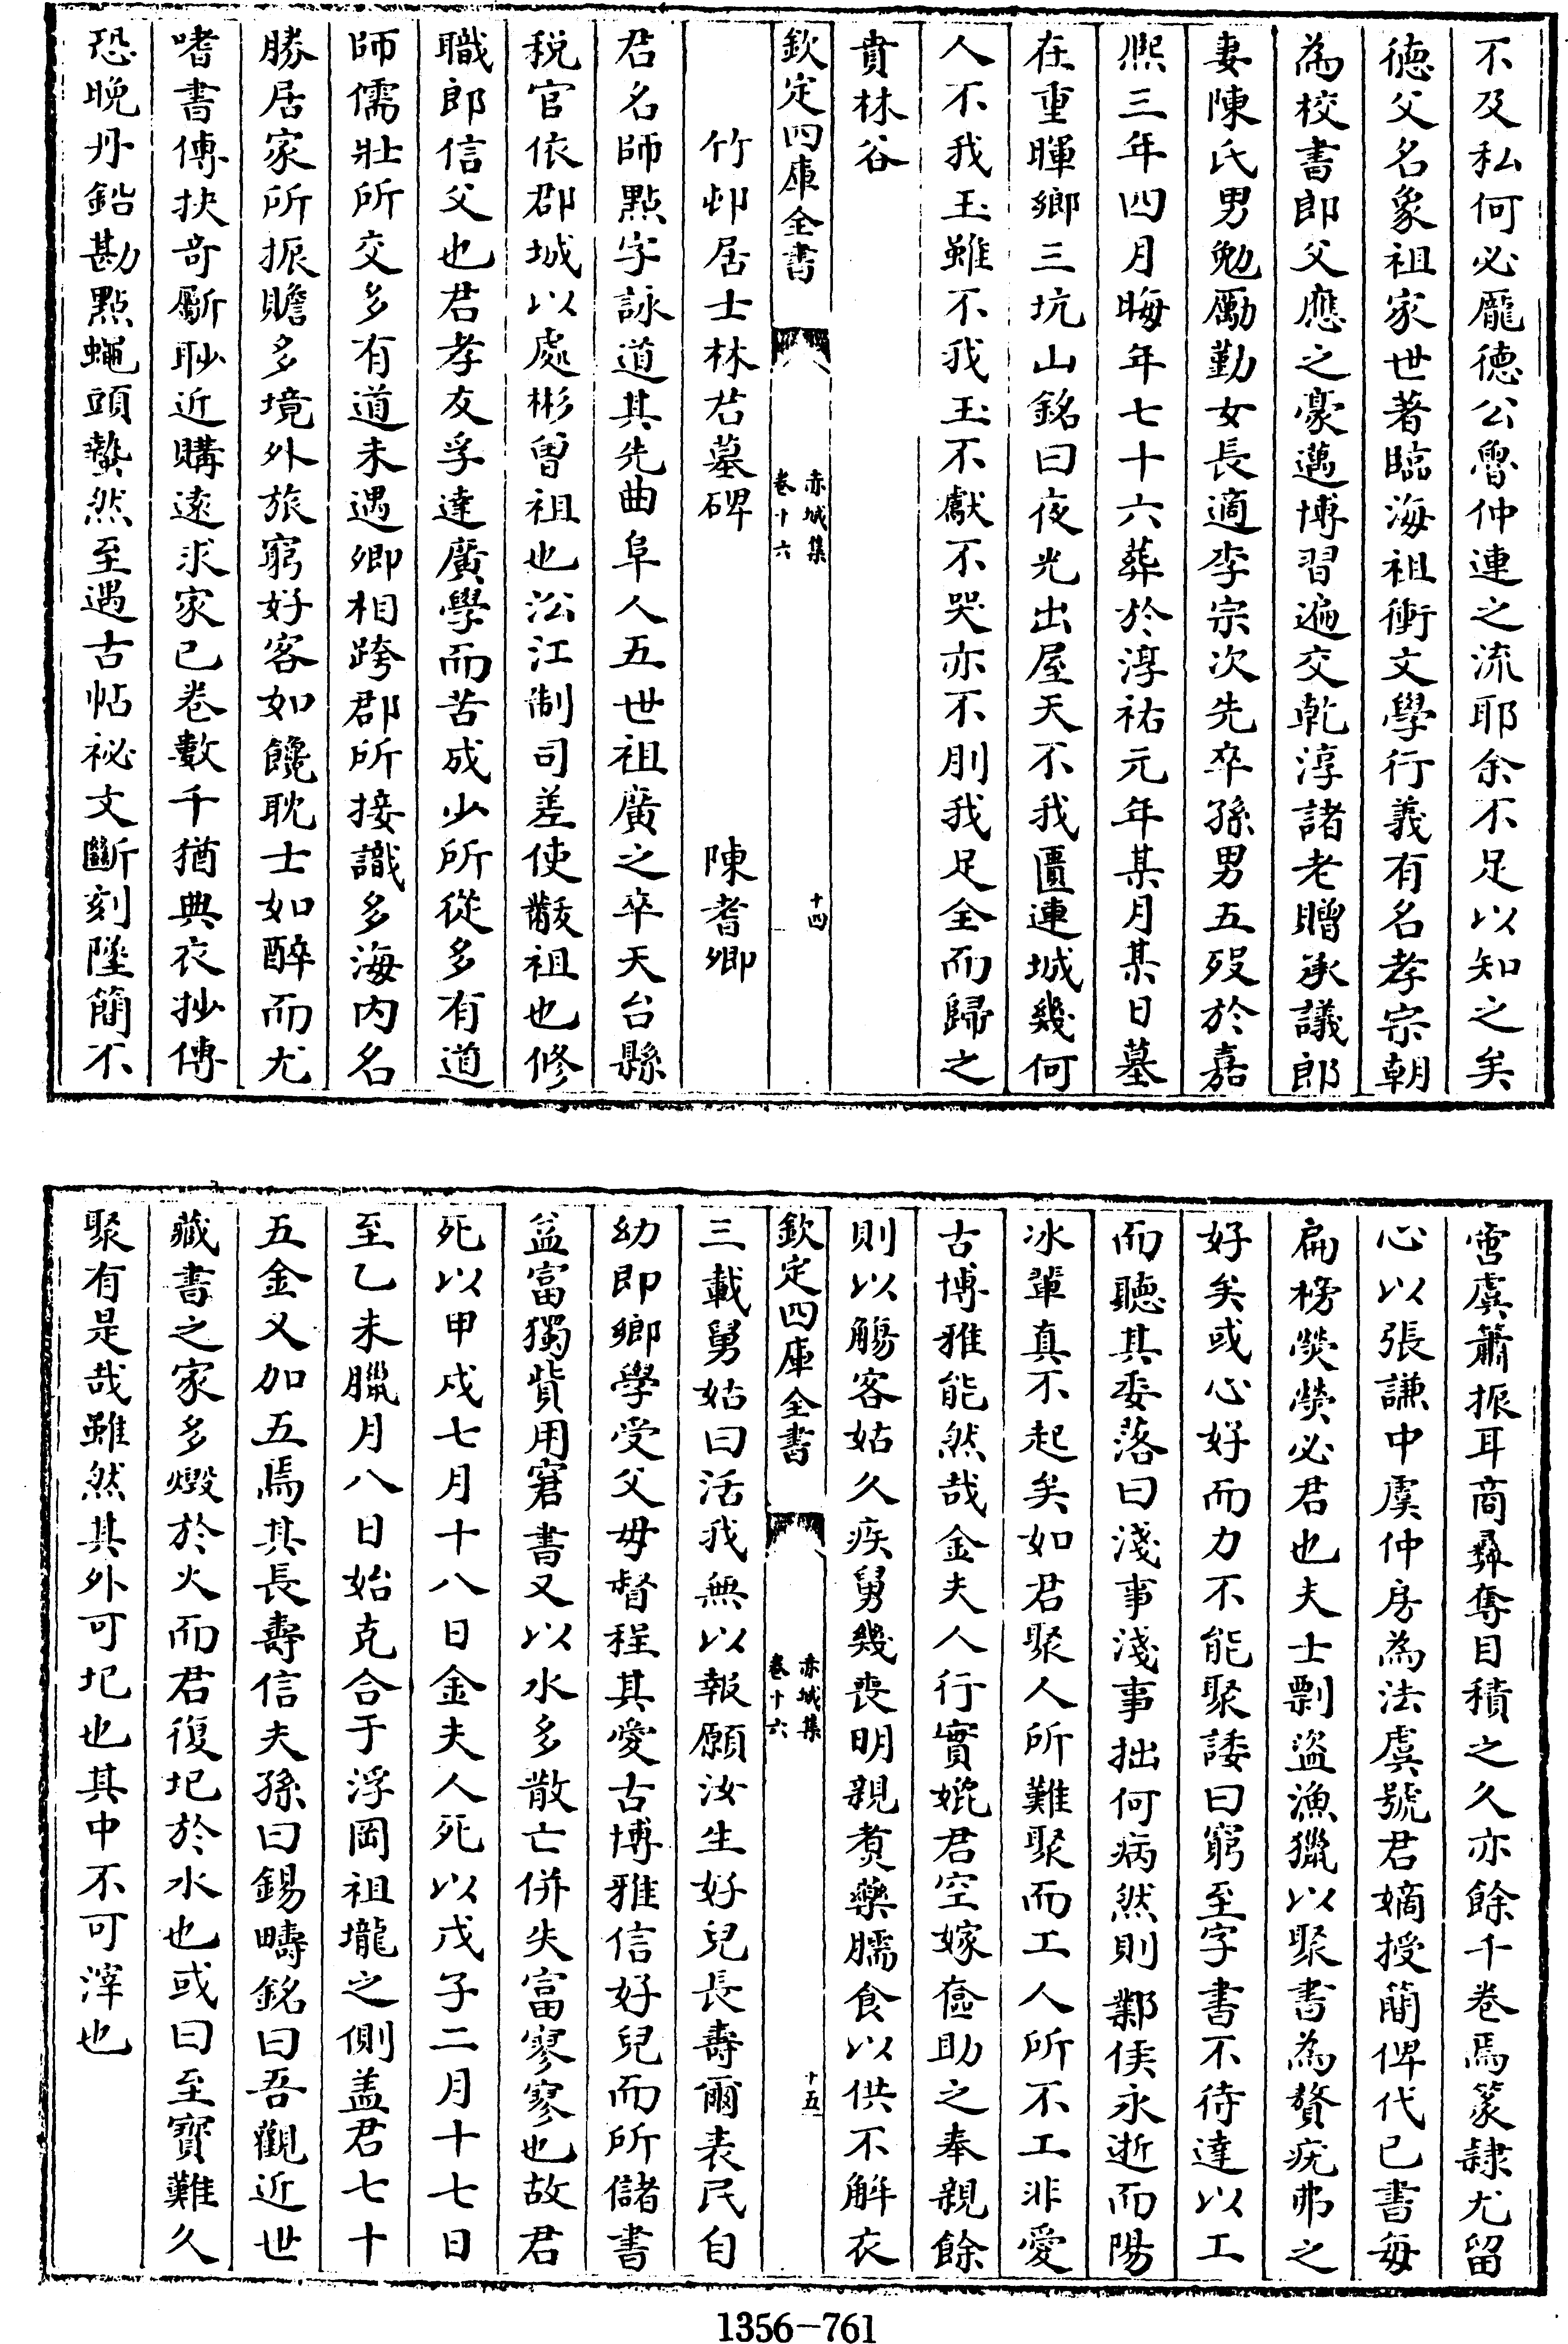 不及私何必龐德公魯仲連之流耶余不足以知之矣
德父名象祖家世著臨海祖衝文學行義有名孝宗朝
為校書郎父應之豪邁博習遍交乾淳諸老贈承議郎
妻陳氏男勉勵勤女長適李宗次先卒孫男五歿於嘉
熙三年四月晦年七十六葬於淳祐元年某月某日墓
在重暉鄉三坑山銘曰夜光出屋天不我匱連城幾何
人不我玉雖不我玉不獻不哭亦不刖我足全而歸之
賁林谷
欽定四庫全書
赤城集
卷十六
十四
竹邨居士林君墓碑 陳耆卿
君名師點字詠道其先曲阜人五世祖廣之卒天台縣
稅官依郡城以處彬曾祖也㳂江制司差使黻祖也修
職郎信父也君孝友孚達廣學而苦成少所從多有道
師儒壯所交多有道未遇卿相跨郡所接識多海内名
勝居家所振贍多境外旅窮好客如饞耽士如醉而尤
嗜書傳抉奇斸眇近購遠求家已卷數千猶典衣抄傳
恐晚丹鉛勘點蠅頭蟄然至遇古帖祕文斷刻墜簡不
啻虞簫振耳商彛奪目積之久亦餘千卷焉篆隸尤留
心以張謙中虞仲房為法虞號君嫡授簡俾代已書每
扁榜熒熒必君也夫士剽盜漁獵以聚書為贅疣弗之
好矣或心好而力不能聚諉曰窮至字書不待達以工
而聽其委落曰淺事淺事拙何病然則鄴侯永逝而陽
冰輩真不起矣如君聚人所難聚而工人所不工非愛
古博雅能然哉金夫人行實媲君空嫁奩助之奉親餘
則以觴客姑久疾舅幾喪明親煑藥臑食以供不解衣
欽定四庫全書
赤城集
卷十六
十五
三載舅姑曰活我無以報願汝生好兒長壽爾表民自
幼即鄉學受父毋督程其愛古博雅信好兒而所儲書
益富獨貲用窘書又以水多散亡併失富寥寥也故君
死以甲戌七月十八日金夫人死以戊子二月十七日
至乙未臘月八日始克合于浮岡祖壠之側盖君七十
五金又加五焉其長壽信夫孫曰錫疇銘曰吾觀近世
藏書之家多燬於火而君復圮於水也或曰至寶難久
聚有是哉雖然其外可圮也其中不可滓也
1356-761